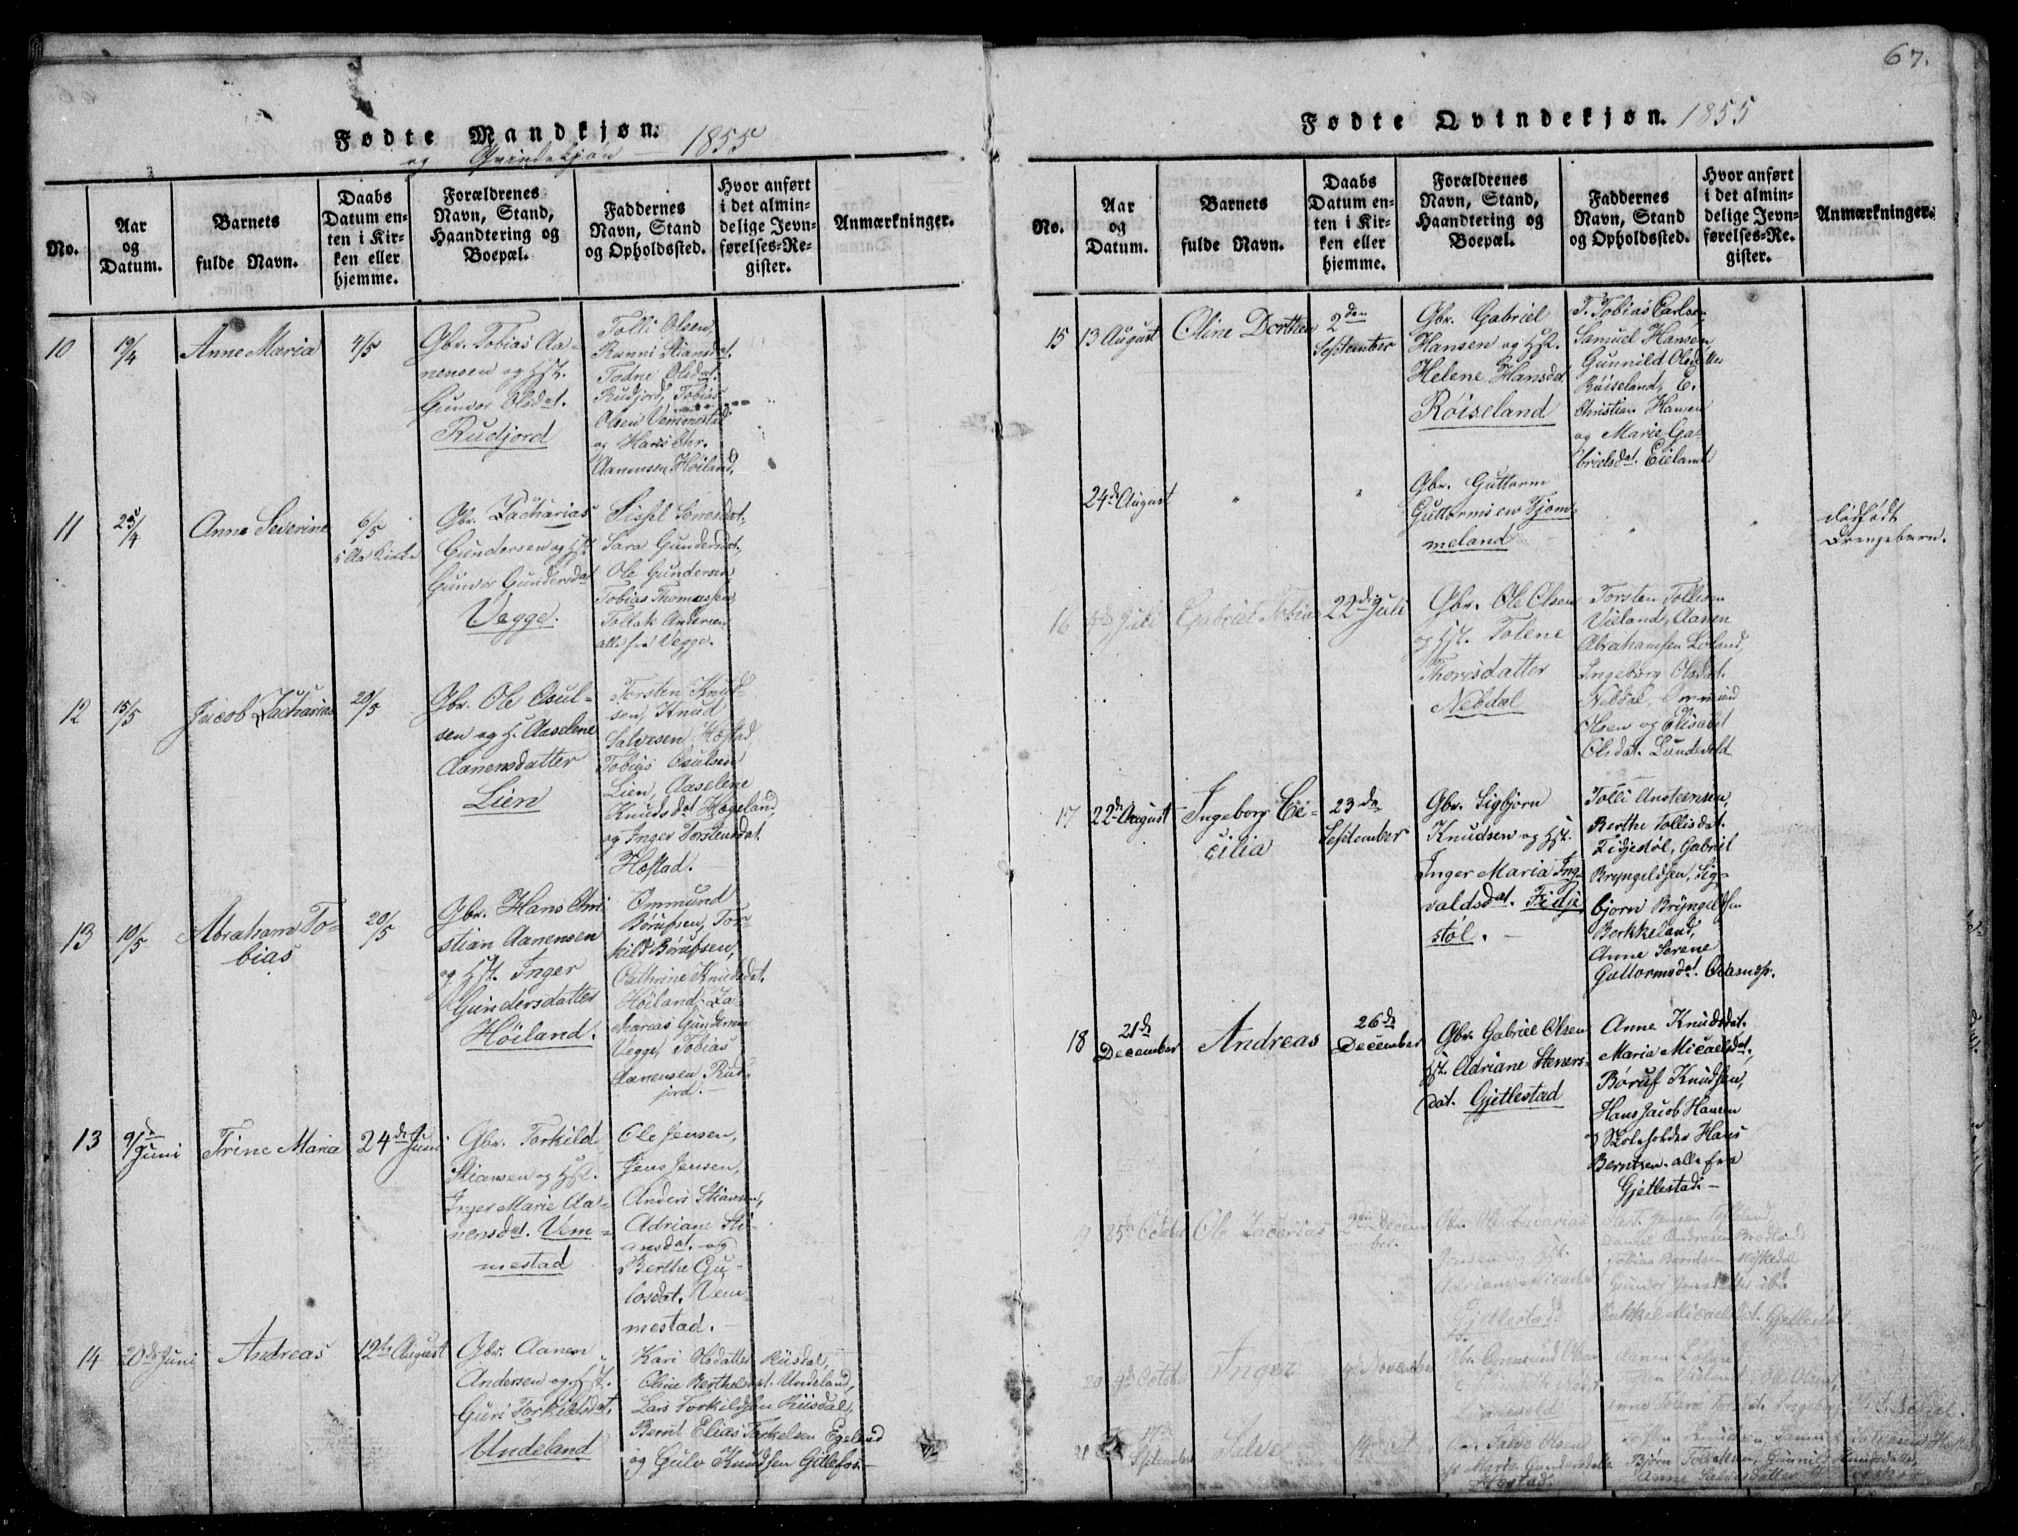 67.
Fødte Mandkjøn.
og Qvindekjön — 1855
No.
Aar
og
Datum.
Barnets
fulde Navn.
Daabs
Datum en-
ten i Kir-
ken eller
hjemme.
Forældrenes
Navn, Stand,
Haandtering og
Boepæl.
Faddernes
Navn, Stand
og Opholdssted.
Hvor anført
i det almin-
delige Jevn-
førelses-Re-
gister.
Anmærkninger.
10
19/4
Anne Maria
4/5
Gbr. Tobias Aa-
nensen og Hst.
Gunvor Olsdat.
Rudjord
Tolli Olsen,
Runni Stiansdat.
Todne Olsdat.
Rudjord, Tobias
Olsen Vemmestad
og Hans Chr.
Aanensen Höiland.
11
25/4
Anne Severine
6/5
i Aa Kirke
Gbr. Zacharias
Gundersen og Hst.
Gunvor Gundersdat
Vegge.
Sissel
Sara Gundersdat.
Ole Gundersen
Tobias Thomassen
Tollak Andersen
alle fra Vegge.
12
15/5
Jacob Zacharias
20/5
Gbr. Ole Osul-
sen og H. Aaselene
Aanensdatter
Lien
Torsten Knud-
sen, Knud
Salvesen Hæstad
Tobias Osulsen
Lien, Aaselene
Knudsdat Hægeland,
og Inger Torstensdat.
Hæstad.
13
10/5
Abraham To-
bias
20/5
Gbr. Hans Chri
stian Aanensen
og Hst. Inger
Gundersdatter
Höiland.
Ommund
Börufsen, Tor-
kild Börufsen,
Cathrine Knudsdat.
Höiland, Za-
charias Gundersen
Vegge, Tobias
Aanensen Rud-
jord.
13
9/de
Juni
Trine Maria
24de Juni
Gbr. Torkild
Stiansen og Hst.
Inger Marie Aa-
nensdat. Vem-
mestad
Ole Jensen,
Jens Jensen,
Anders Stiansen,
Adriane Sti-
ansdat. og
Berthe Gu-
losdat. Vem-
mestad.
14
20de Juni
Andreas
12te August
Gbr. Aanen
Andersen og Hst.
Guri Torkildsdat.
Undeland
Kari Olsdatter Riisdal,
Oline Berthelsdat. Undeland,
Lars Torkildsen Riisdal,
Bernt Elias Torkelsen Egeland
og Gulov Knudsen Gitlefos.
Fødte Qvindekjøn. 1855
No.
Aar
og
Datum.
Barnets
fulde Navn.
Daabs
Datum en-
ten i Kir-
ken eller
hjemme.
Forældrenes
Navn, Stand,
Haandtering og
Boepæl.
Faddernes
Navn, Stand
og Opholdssted.
Hvor anført
i det almin-
delige Jevn-
førelses-Re-
gister.
Anmærkninger.
15
13 August
Oline Dorthea
2den
September
Gbr. Gabriel
Hansen og Hst.
Helene Hansdat
Röiseland
T. Tobias Carlsen,
Samuel Hansen,
Gunnild Olsdatter
Röiseland, E.
Christian Hansen
og Marie Ga-
brielsdat. Eieland
24de August
"
"
Gbr. Guttorm
Guttormsen Fjom-
meland
"
"
dödfödt
Drengebarn.
16
Juli
Gabriel Tobias
22de Juli
Gbr. Ole Olsen
og Hst. Tolene
Thorsdatter
Nebdal
Torsten Tollisen
Vieland, Aanen
Abrahamsen Loland,
Ingeborg Olsdat.
Nebdal, Ommund
Olsen og Elisabet
Olsdat. Lundevold
17
22de August
Ingeborg Ce-
cilia
23de
September
Gbr. Sigbjørn
Knudsen og Hst.
Inger Maria Ing-
valdsdat. Fidje
støl.
Tolli Ansteensen,
Berthe Tollisdat.
Fidjestøl, Gabriel
Bryngeldsen, Sig-
bjørn Bryngeldsen
Borkkeland,
Anne Serene
Guttormsdat.
18
21de
December
Andreas
26de
December
Gbr. Gabriel Olsen
Hst. Adriane Steners-
dat. Gjetlestad
Anne Knudsdat.
Maria Micaelsdat.
Böruf Knudsen,
Hans Jacob Hansen
og Skoleholder Hans
Berntsen. alle fra
Gjetlestad.
25de October
Ole Zacarias
Decem
ber.
Gbr. Ole Zacarias
Jensen og Hst.
Gjetlestad.
Jensen
Daniel Andresen Brodland
Tobias Berntsen
Gunvor Jensdatter ibd.
Micaelsdat. Gjetlestad.
20
October
Inger
November
Gbr. Ommund Olsen
Lundevold
21
17de
September
Salve
Gbr. Salve Olsen
Hst. Marte Gundersdatter
Hæstad.
Knudsen
Bjørn Tollaksen, Gunnild Knudsdatter,
Anne Salvesdatter